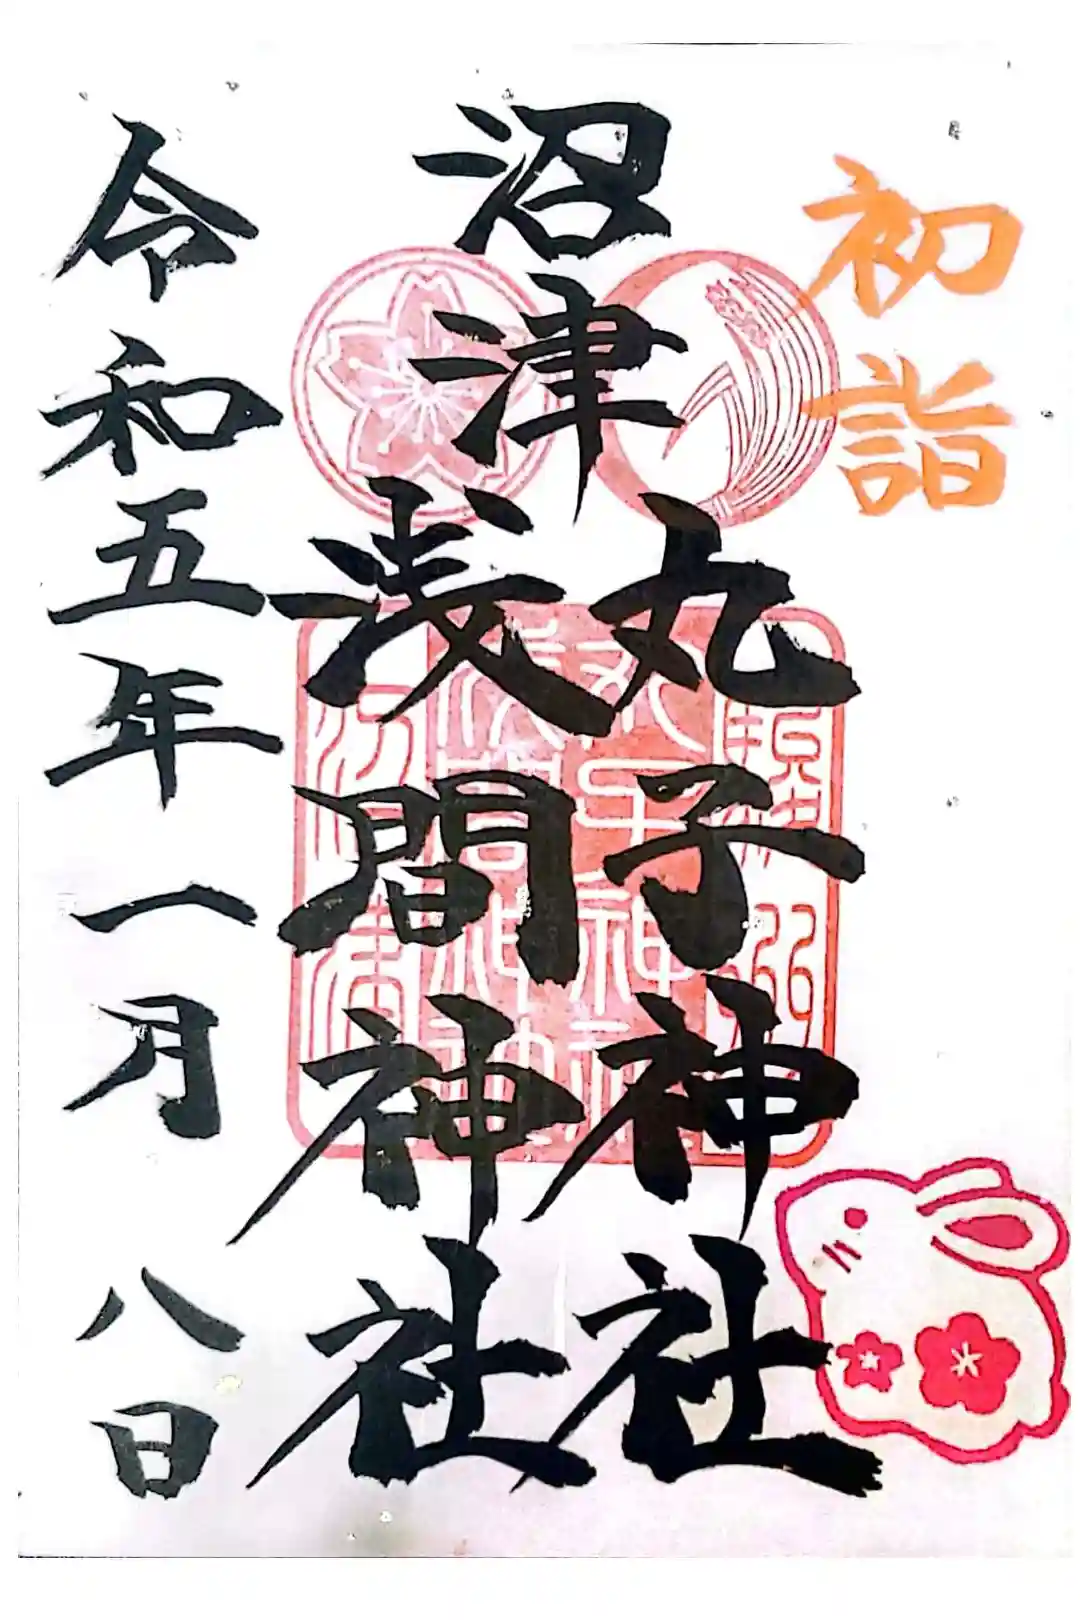 初詣
沼津
丸子神社
浅間神社
令和五年一月八日